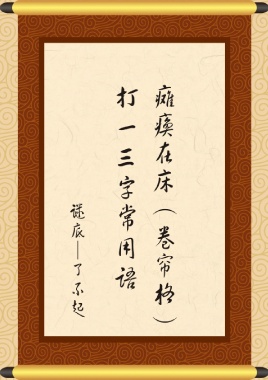 瘫痪在床（卷帘格）
打一三字常用语
谜底—了不起